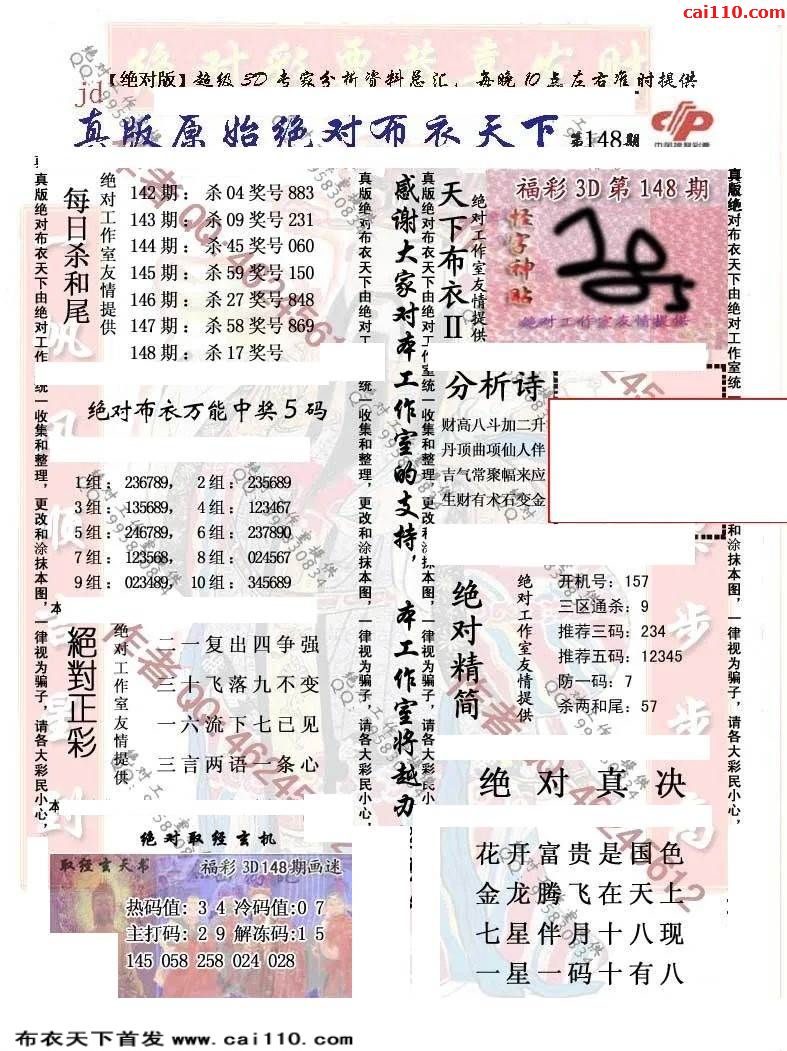 cai110.com
【绝对版】超级3D专家分析资料总汇，每晚10点左右准时提供
jd
真版原始绝对布衣天下 第148期
中国福利彩票
每日杀和尾
绝对工作室友情提供
142期：杀04奖号883
143期：杀09奖号231
144期：杀45奖号060
145期：杀59奖号150
146期：杀27奖号848
147期：杀58奖号869
148期：杀17奖号
绝对布衣万能中奖5码
1组：236789，2组：235689
3组：135689，4组：123467
5组：246789，6组：237890
7组：123568，8组：024567
9组：023489，10组：345689
絕對正彩
绝对工作室友情提供
二一复出四争强
三十飞落九不变
一六流下七已见
三言两语一条心
绝对取经玄机
取经玄天书
福彩3D148期画迷
热码值：3 4 冷码值:0 7
主打码：2 9 解冻码:1 5
145 058 258 024 028
感谢大家对本工作室的支持，本工作室将越办
真版绝对布衣天下由绝对工作室统一收集和整理，更改和涂抹本图，一律视为骗子，请各大彩民小心，
天下布衣II
绝对工作室友情提供
福彩3D第148期
怪字神贴
绝对工作室友情提供
分析诗
财高八斗加二升
丹顶曲项仙人伴
吉气常聚幅来应
生财有术石变金
绝对精简
绝对工作室友情提供
开机号：157
三区通杀：9
推荐三码：234
推荐五码：12345
防一码：7
杀两和尾：57
绝对真决
花开富贵是国色
金龙腾飞在天上
七星伴月十八现
一星一码十有八
布衣天下首发 www.cai110.com